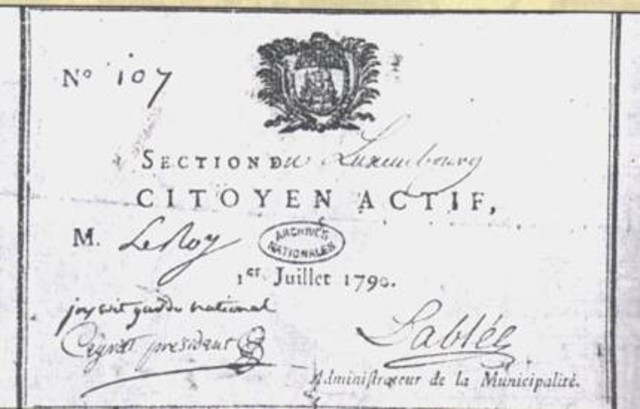 Nº 107
SECTION Du Luxembourg
CITOYEN ACTIF,
M. LeRoy
ARCHIVES NATIONALES
1er Juillet 1790.
national
Ceyrat president
Lablée
Administrateur de la Municipalité.